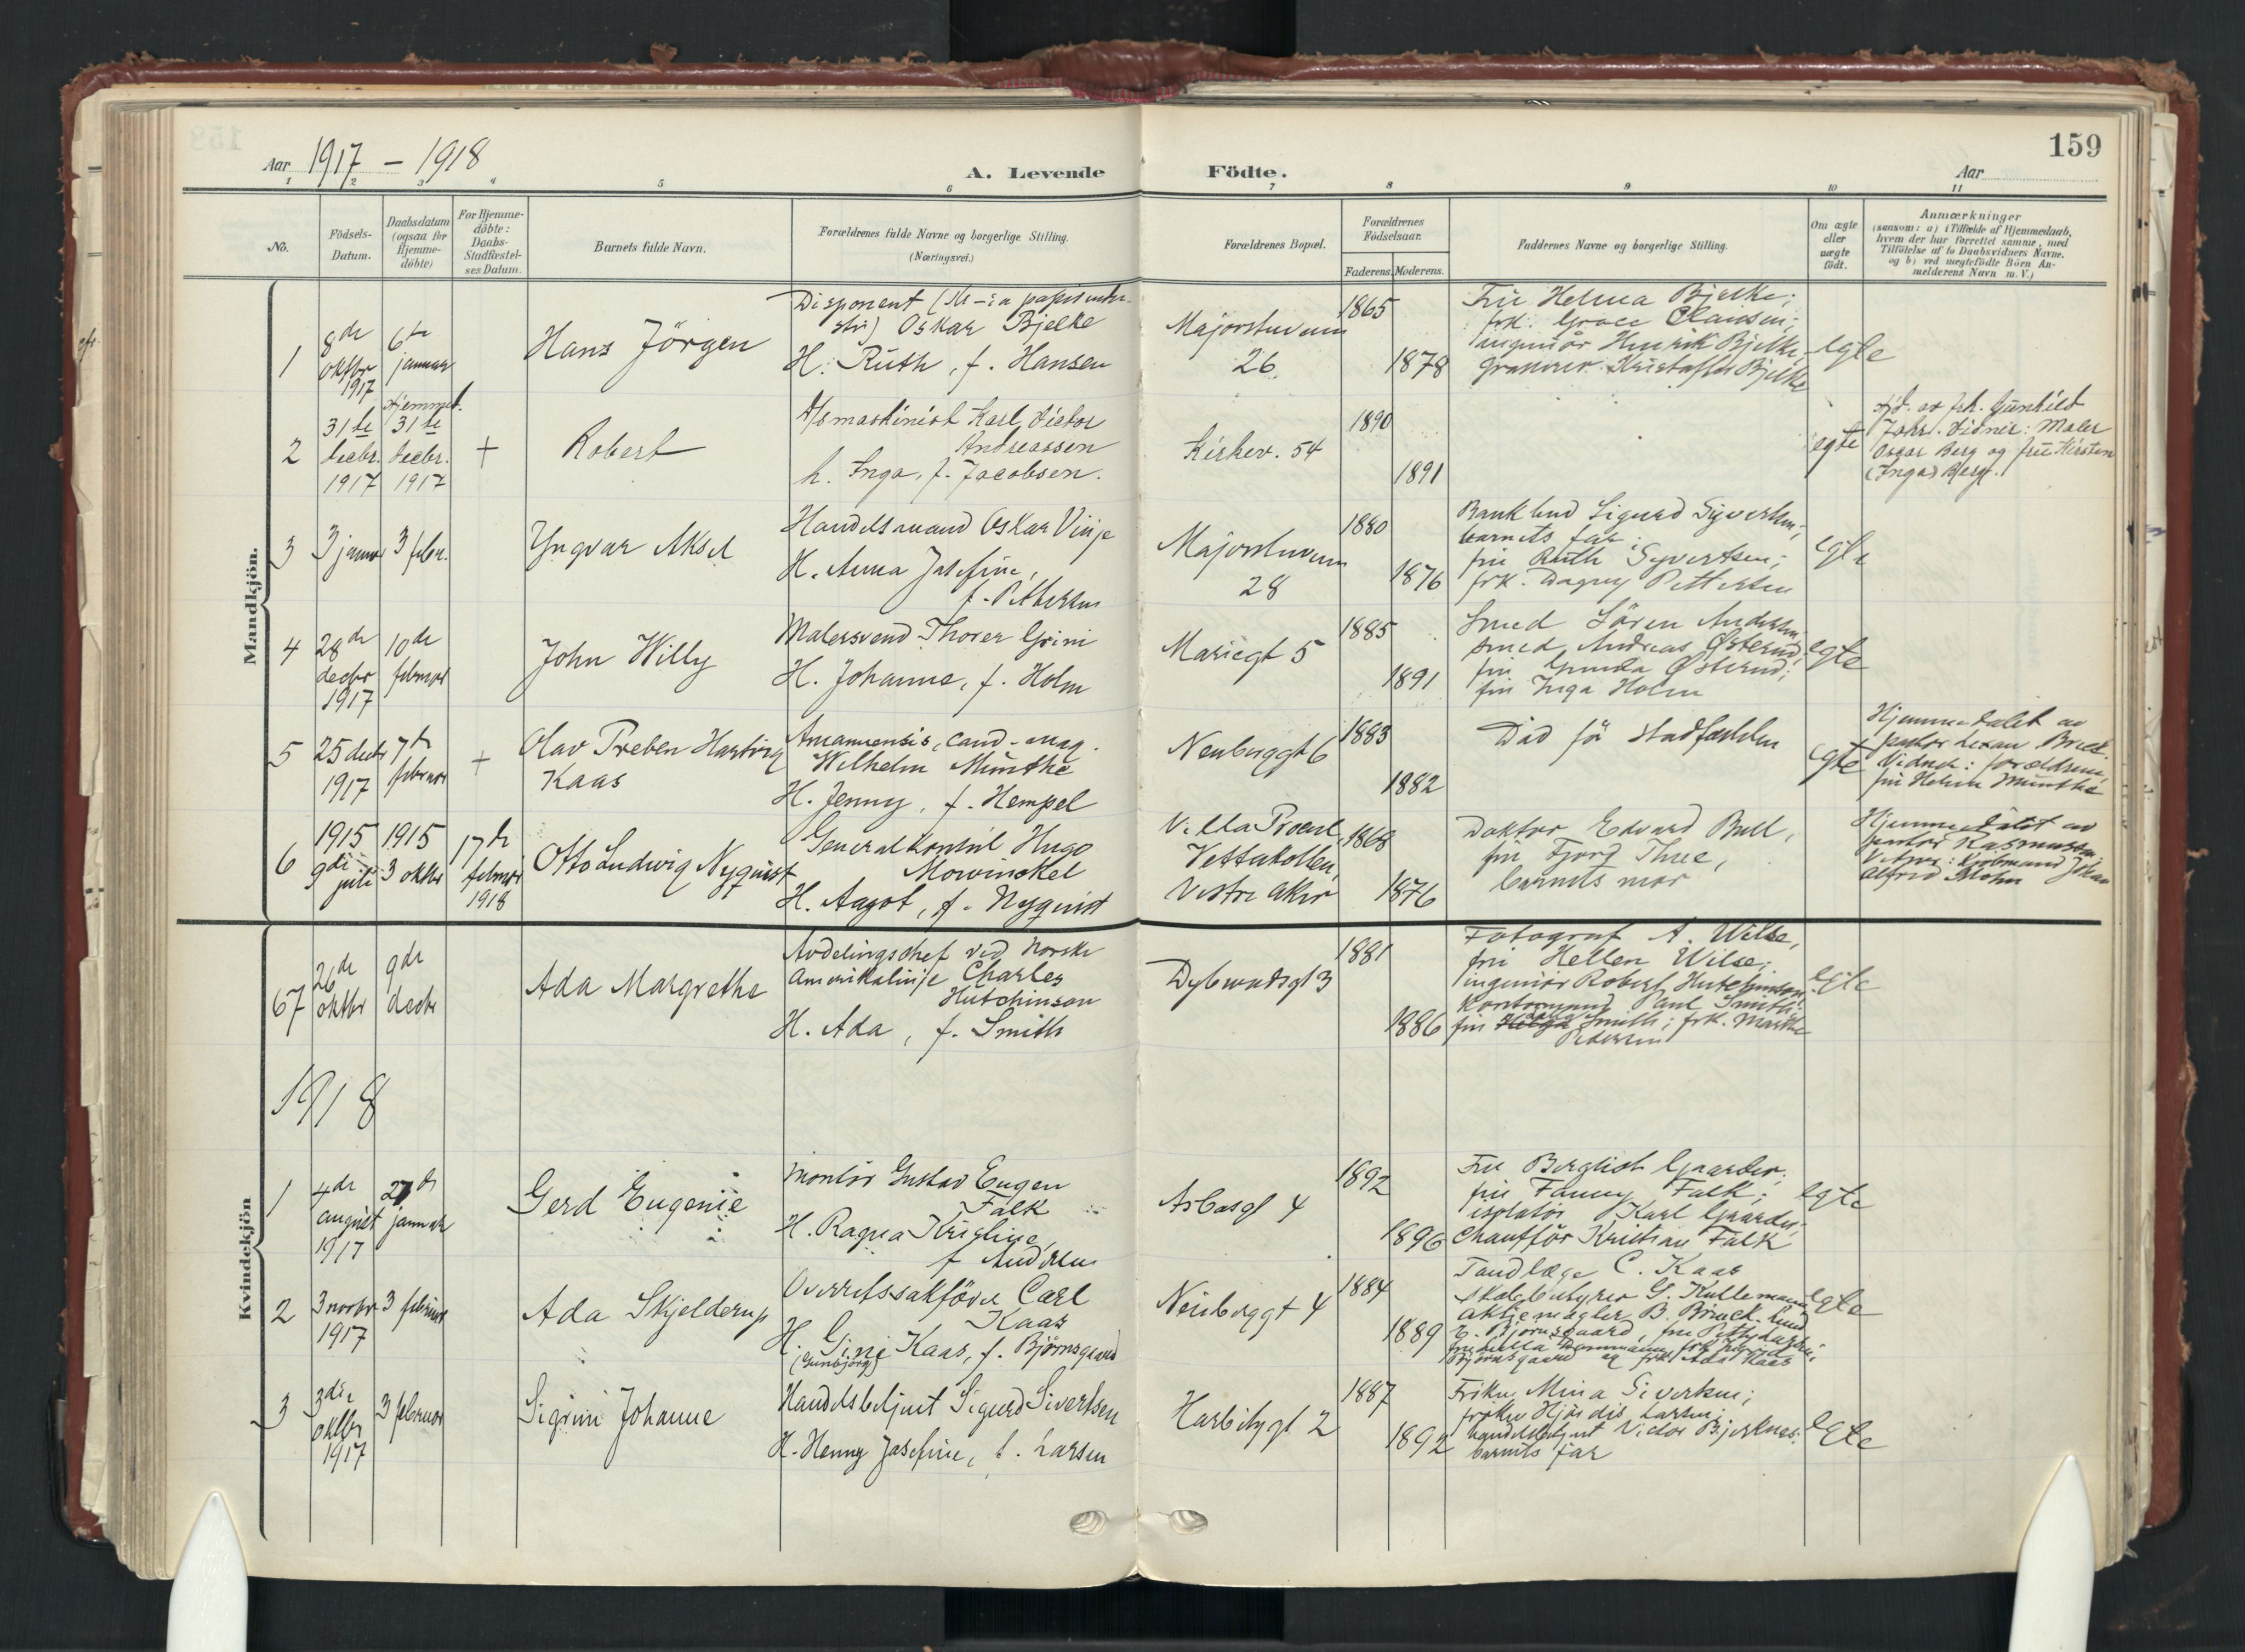 159
Aar 1917 - 1918
A. Levende Födte.
Aar
1 2 3 4 5 6 7 8 9 10 11
No.
Födsels-Datum.
Daabsdatum (ogsaa for Hjemme-döbte)
For Hjemme-döbte: Daabs-Stadfæstel-ses Datum.
Barnets fulde Navn.
Forældrenes fulde Navne og borgerlige Stilling.
(Næringsvei.)
Forældrenes Bopæl.
Forældrenes Födselsaar.
Faderens. Moderens.
Faddernes Navne og borgerlige Stilling.
Om ægte eller uægte födt.
Anmærkninger
(saasom: a) i Tilfælde af Hjemmedaab,
hvem der har forrettet samme, med
Tilföielse af to Daabsvidners Navne,
og b) ved uægtefödte Börn An-
melderens Navn m. V.)
Mandkjön.
1
8de oktbr 1917
6te januar
Hans Jörgen
Disponent
Oskar Bjelke
H. Ruth, f. Hansen
Majorstuveien
26
1865
1878
Fru Helma Bjelke;
frk. Grace Clausen;
ingeniör Henrik Bjelke,
Bjelke
egte
2
31te decbr. 1917
Hjemmed. 31te decbr. 1917
+
Robert
maskinist Karl Victor
Andreassen
h. Inga, f. Jacobsen.
Kirkev. 54
1890
1891
egte
av frk. Gunhild
Vidner: Maler
Oscar Berg og frue Kirsten
(Inga) Berg.
3
3 januar
3 febr.
Yngvar Aksel
Handelsmand Oskar Vinje
H. Anna Josefine,
f. Pettersen
Majorstuveien
28
1880
1876
Sigurd Syvertsen,
barnets far;
fru Ruth Syvertsen;
frk. Dagny Pettersen
egte
4
28de decbr 1917
10de februar
John Willy
Malersvend Thorer Grini
H. Johanne, f. Holm
Mariegt 5
1885
1891
Smed Sören Andersen,
smed Andreas Østerud,
fru Gunda Østerud;
fru Inga Holm
egte
5
25 decbr 1917
7de februar
+
Olav Preben Hartvig
Kaas
Amanuensis, cand. mag.
Wilhelm Munthe
H. Jenny, f. Hempel
Neubergsgt 6
1883
1882
Död för stadfæstelsen
egte
Hjemmedöbt av
pastor
Vidner: forældrene,
fru Helen Munthe
6
1915 9de juli
1915 3 oktbr
17de februar 1918
Otto Ludwig Nyquist
Generalkonsul Hugo
Mowinckel
H. Aagot, f. Nyquist
Villa
Vettakollen,
Vestre Aker
1868
1876
Doktor Edvard Bull,
fru
barnets mor
Hjemmedöbt av
pastor Rasmussen
Kjöbmand Johan
Alfred Mohn
Kvindekjön
67
26de oktbr
9de decbr
Ada Margrethe
Avdelingschef ved Norske
Amerikalinje Charles
Hutchinson
H. Ada, f. Smith
Dybwadsgt 3
1881
1886
Fotograf A. Wilse,
fru Hellen Wilse;
ingeniör Robert Hutchinson;
Paul Smith;
fru Smith; frk. Marthe
Pedersen
egte
1918
1
4de august 1917
27de januar
Gerd Eugenie
Montör Gustav Eugen
Falk
H. Ragna Kristine,
f. Andersen
Asbasgt 4
1892
1896
Fru Bergliot Gaarder,
fru Fanny Falk;
isolatör Karl Gaarder,
Chaufför Kristian Falk
egte
2
3 novbr 1917
3 februar
Ada Skjelderup
Overretssakförer Carl
Kaas
H. Gini Kaas, f. Björnsgaard
(Gunbjörg)
Neubergsgt 4
1884
1889
Tandlæge C. Kaas
skolebestyrer G. Kullemann
aktiemægler B. Bruck.
E. Björnsgaard,
Björnsgaard og frk. Ada Kaas
egte
3
3die oktbr 1917
3 februar
Sigrun Johanne
Handelsbetjent Sigurd Sivertsen
H. Henny Josefine, f. Larsen
Harbitzgt 2
1887
1892
Fröken Mina Sivertsen;
fröken Hjördis Larsen;
handelsbetjent Victor Bjerknes;
barnets far
egte